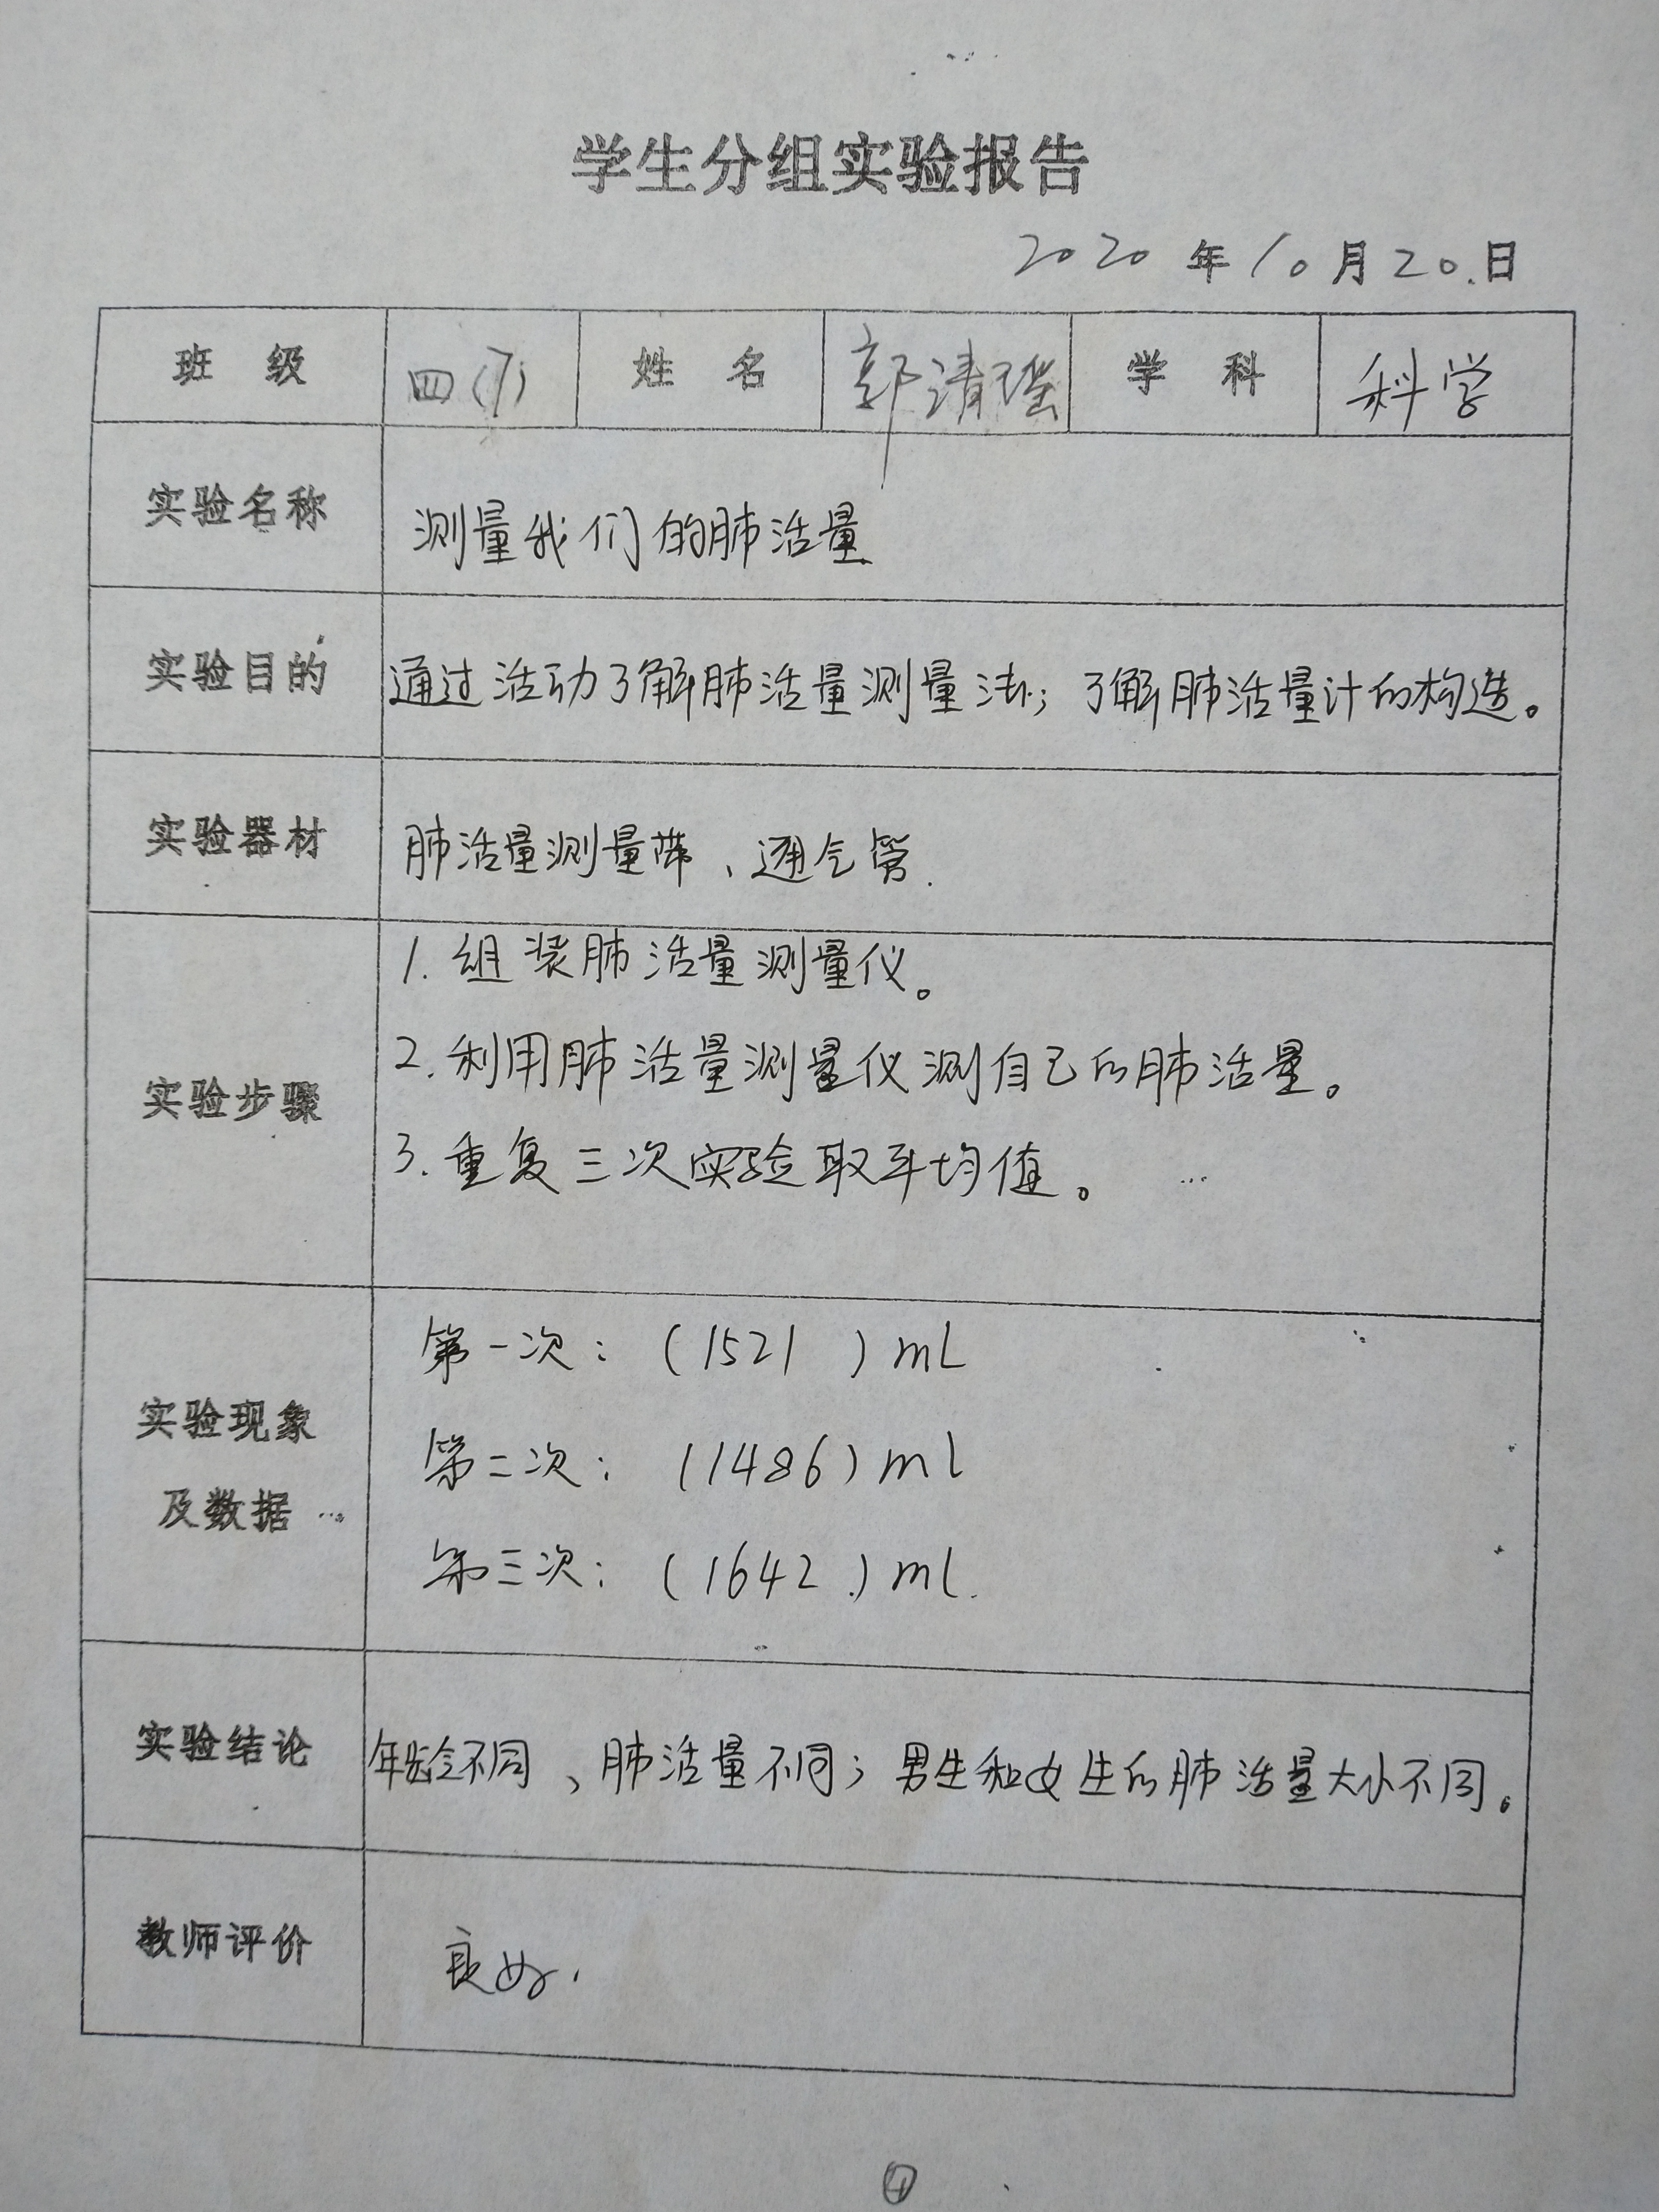 学生分组实验报告
2020年10月20.日
班级 四(7) 姓名 郭清瑶 学科 科学
实验名称 测量我们的肺活量
实验目的 通过活动了解肺活量测量法；了解肺活量计的构造。
实验器材 肺活量测量带、通气管.
实验步骤
1. 组装肺活量测量仪。
2. 利用肺活量测量仪测自己的肺活量。
3. 重复三次实验取平均值。
实验现象
及数据
第一次：（1521 ）mL
第二次：（1486）ml
第三次：（1642.）ml.
实验结论 年龄不同、肺活量不同；男生和女生的肺活量大小不同。
教师评价 良好.
④